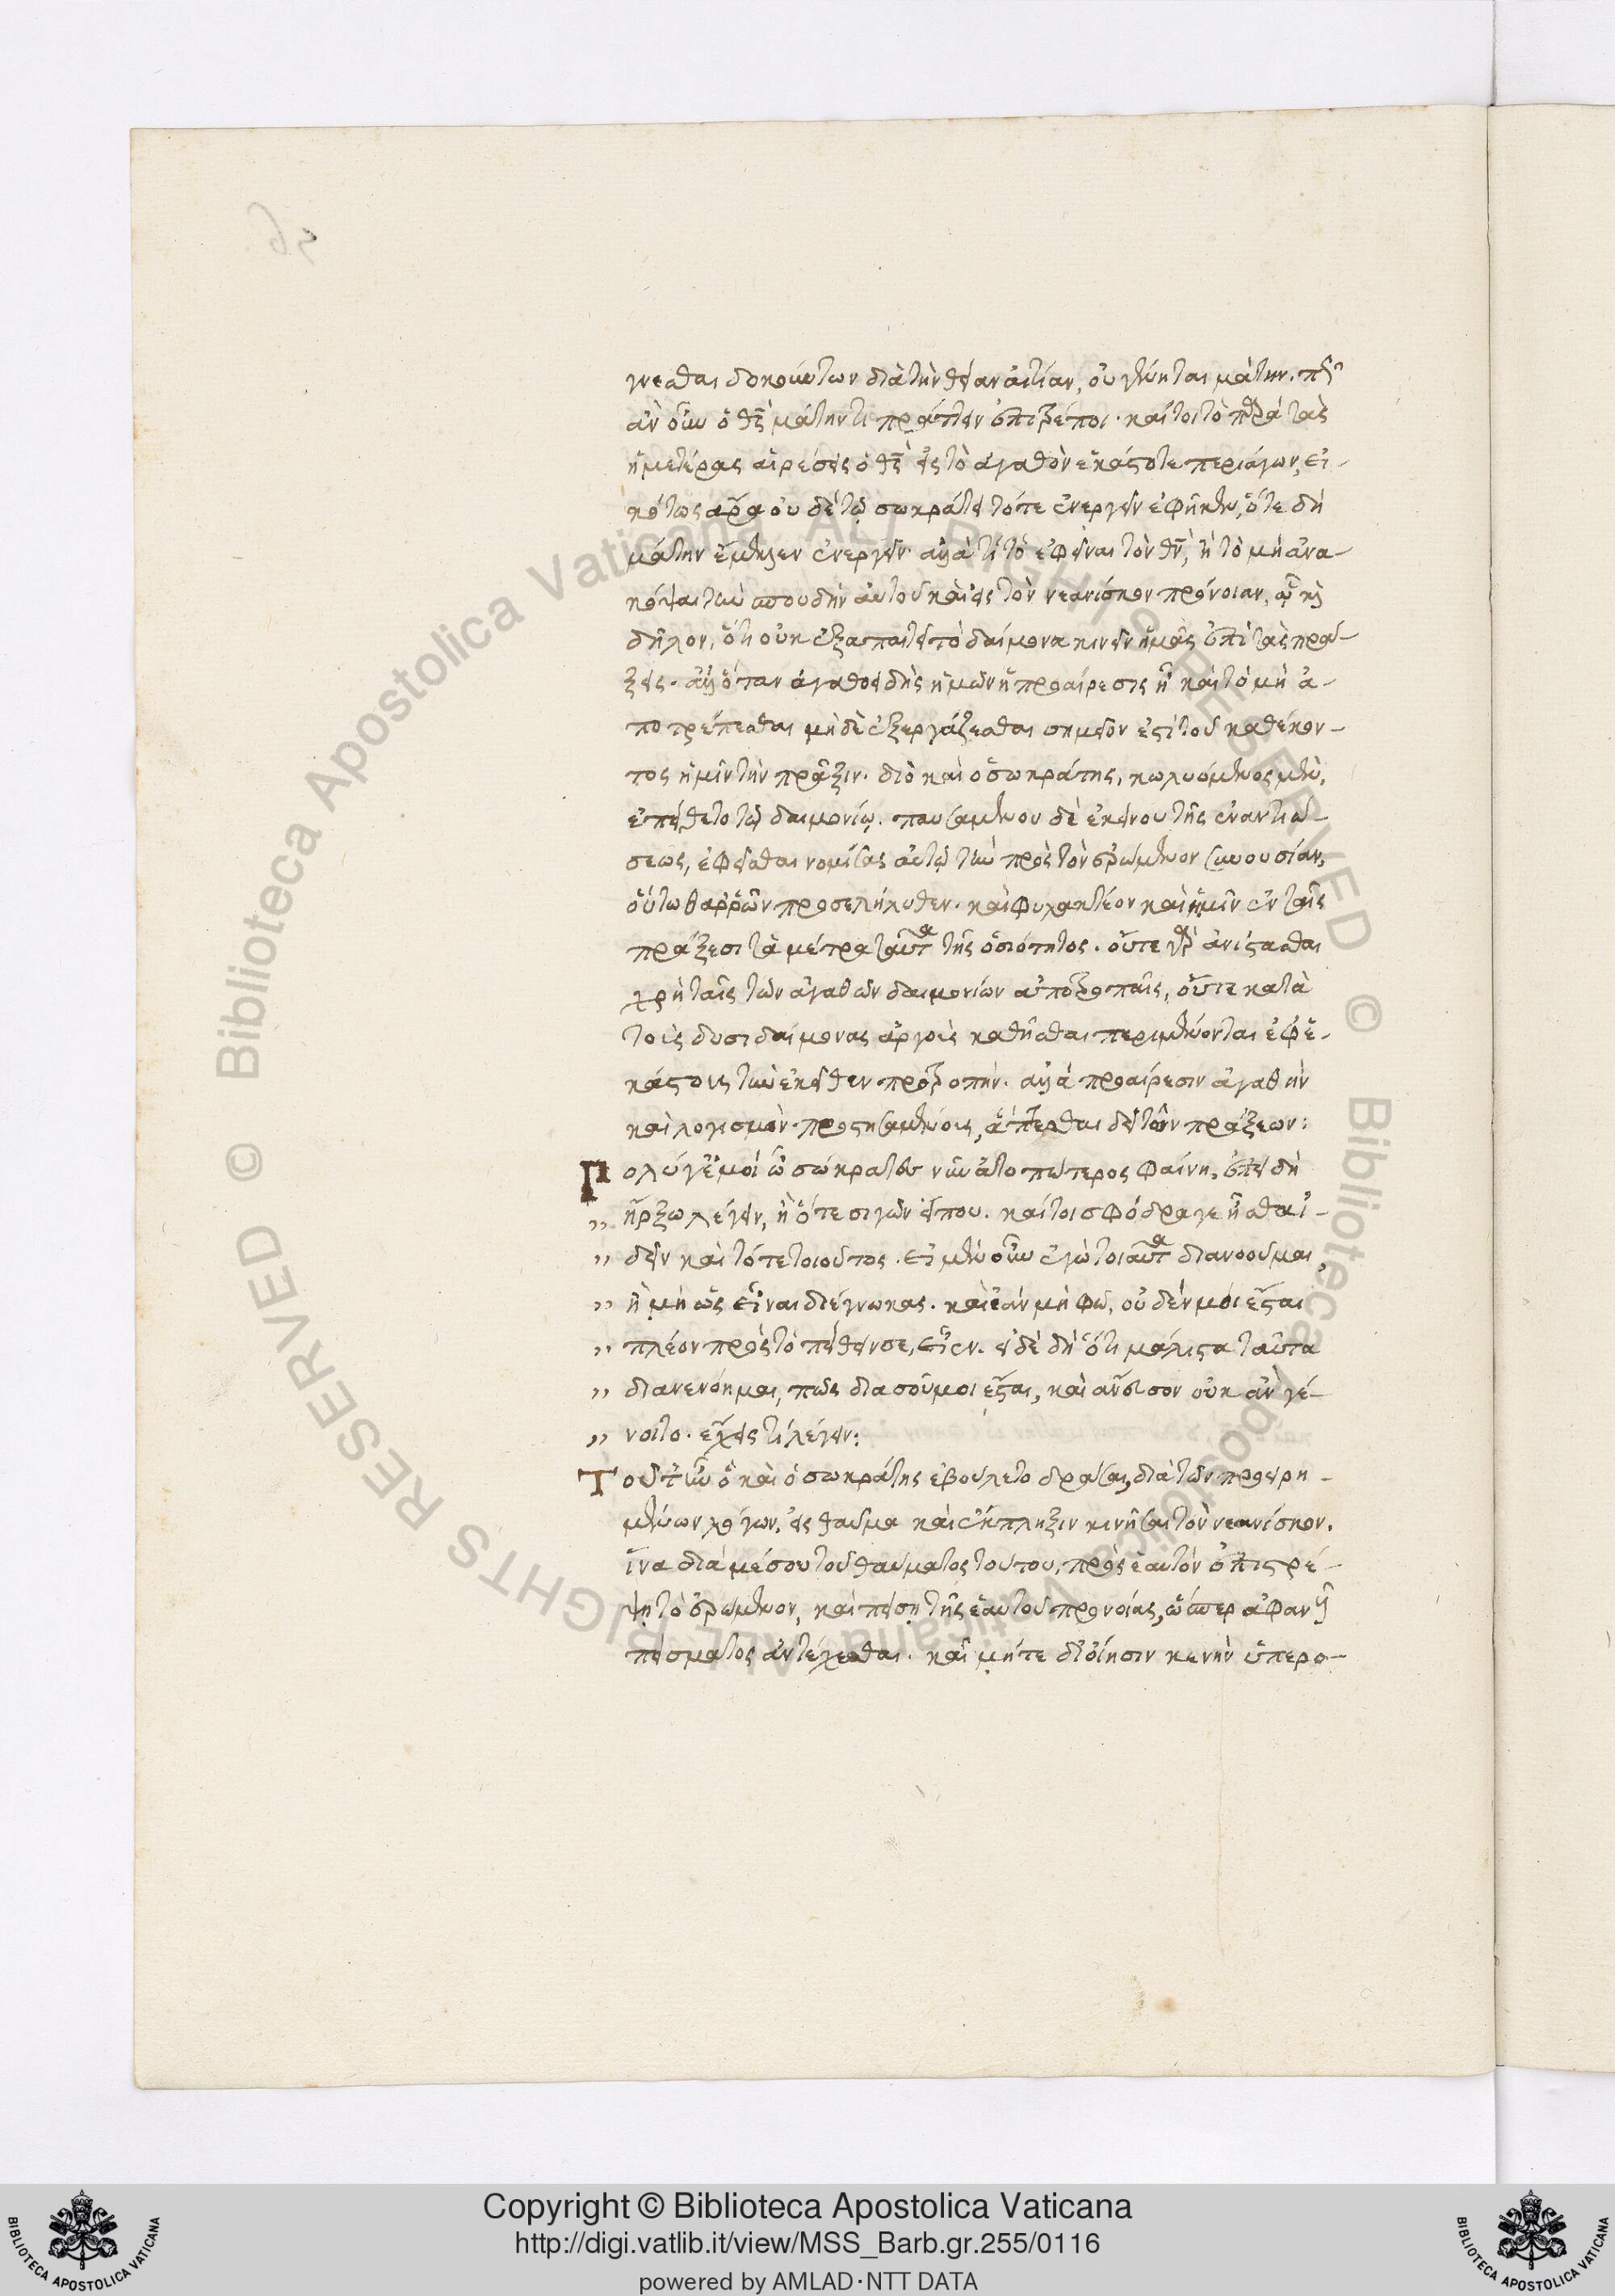 γνεσθαι δοκούντων διὰ τὴν θείαν αἰτίαν, οὐ γένηται μάτην. πῶς
ἂν οὖν ὁ θς μάτην τι πράττειν ἐπιτρέποι. καίτοι τὸ π τὰς
ἡμετέρας αἱρέσεις ὁ θς εἰς τὸ ἀγαθὸν ἑκάστοτε περιάγων, εἰ-
κότως ἄρα οὐδὲ τῷ σωκράτει τότε ἐνεργεῖν ἐφῆκεν, ὅτε δὴ
μάτην ἔμελλεν ἐνεργεῖν. ἀλλὰ τί τὸ ἐφεῖναι τὸν θν, ἢ τὸ μὴ ἀνα-
κόψαι τὴν σπουδὴν αὐτοῦ καὶ εἰς τὸν νεανίσκον πρόνοιαν, ᾧ καὶ
δῆλον, ὅτι οὐκ ἐξαπαιτεῖ τὸ δαίμονα κινεῖν ἡμᾶς ἐπὶ τὰς πρά-
ξεις. ἀλλ' ὅταν ἀγαθοειδὴς ἡμῶν ἡ προαίρεσις ᾖ καὶ τὸ μὴ ἀ-
ποτρέπεσθαι μηδὲ ἐξεργάζεσθαι σημεῖον ἐστὶ τοῦ καθήκον-
τος ἡμῖν τὴν πρᾶξιν. διὸ καὶ ὁ σωκράτης, κωλυόμενος μὲν,
ἐπείθετο τῷ δαιμονίῳ. παυσαμένου δὲ ἐκείνου τῆς ἐναντιώ-
σεως, ἐφεῖσθαι νομίσας αὐτῷ τὴν πρὸς τὸν ἐρώμενον συνουσίαν,
οὕτω θαρρῶν προσελήλυθεν. καὶ φυλακτέον καὶ ἡμῖν ἐν ταῖς
πράξεσι τὰ μέτρα ταῦτα τῆς ὁσιότητος. οὔτε γὰρ ἀνίστασθαι
χρὴ ταῖς τῶν ἀγαθῶν δαιμονίων ἀποτροπαῖς, οὔτε κατὰ
τοὺς δυσιδαίμονας ἀργοὺς καθῆσθαι περιμένονται ἐφ' ἑ-
κάστοις τὴν ἐκεῖθεν προτροπήν. ἀλλὰ προαίρεσιν ἀγαθὴν
καὶ λογισμὸν προστησαμένοις, ἅπτεσθαι δεῖ τῶν πράξεων:
Πολύ γέ μοί ὦ σώκρατες νῦν ἀτοπώτερος φαίνῃ, ἐπειδὴ
" ἤρξω λέγειν, ἢ ὅτε σιγῶν εἵπου. καίτοι σφόδρα γε ἦσθα ἰ-
" δεῖν καὶ τότε τοιοῦτος. εἰ μὲν οὖν ἐγὼ τοιαῦτα διανοοῦμαι
" ἢ μὴ ὡς εἶναι διέγνωκας. καὶ ἐὰν μὴ φῶ, οὐδέν μοι ἔσται
" πλέον πρὸς τὸ πείθειν σε, εἶεν. εἰ δὲ δὴ ὅτι μάλιστα ταῦτα
" διανενόημαι, πῶς διὰ σοῦ μοι ἔσται, καὶ ἄνευ σου οὐκ ἂν γέ-
" νοιτο. ἔχεις τι λέγειν:
Τοῦτ' ἦν ὃ καὶ ὁ σωκράτης ἐβούλετο δρᾶσαι, διὰ τῶν προειρη-
μένων λόγων, εἰς θαῦμα καὶ ἔκπληξιν κινῆσαι τὸν νεανίσκον.
ἵνα διὰ μέσου τοῦ θαύματος τούτου, πρὸς ἑαυτὸν ἐπιστρέ-
ψῃ τὸ ἐρώμενον, καὶ πείσῃ τῆς ἑαυτοῦ προνοίας, ὥσπερ ἀφανοῦς
πείσματος ἀντέχεσθαι. καὶ μήτε δι' οἴησιν κενὴν ὑπερο-
Copyright © Biblioteca Apostolica Vaticana
http://digi.vatlib.it/view/MSS_Barb.gr.255/0116
powered by AMLAD·NTT DATA